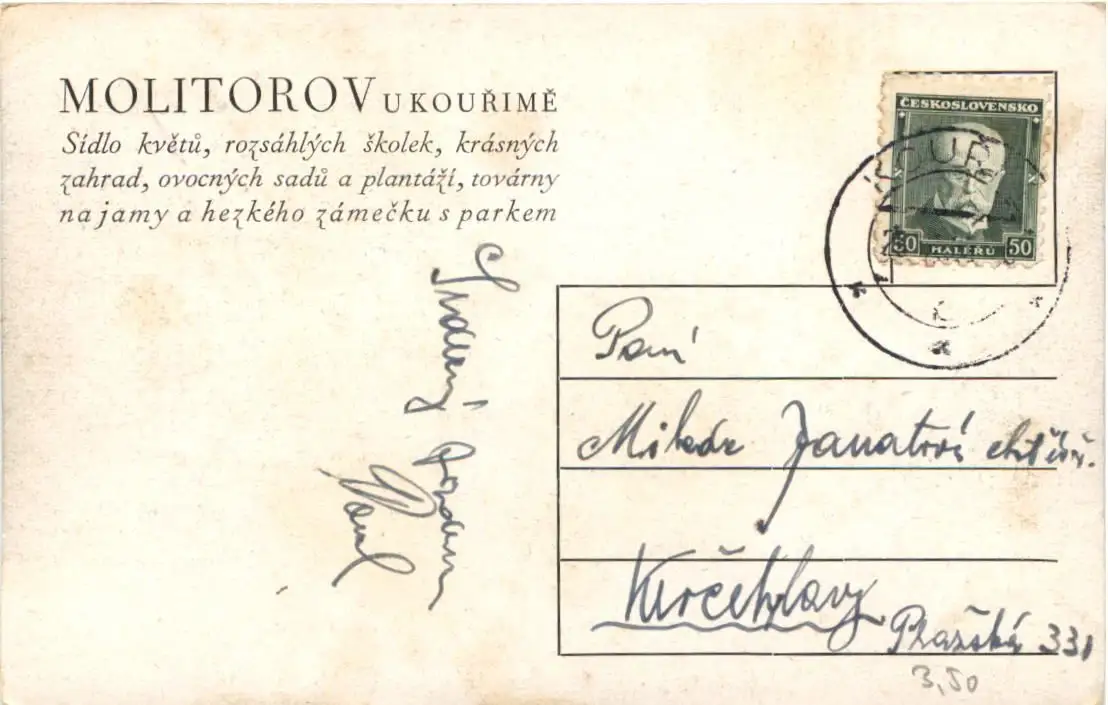 MOLITOROV U KOUŘIMĚ
Sídlo květů, rozsáhlých školek, krásných
zahrad, ovocných sadů a plantáží, továrny
na jamy a hezkého zámečku s parkem
ČESKOSLOVENSKO
50 HALÉŘŮ 50
Srdečný
Paní
Janatová
Pražská 331
3,50